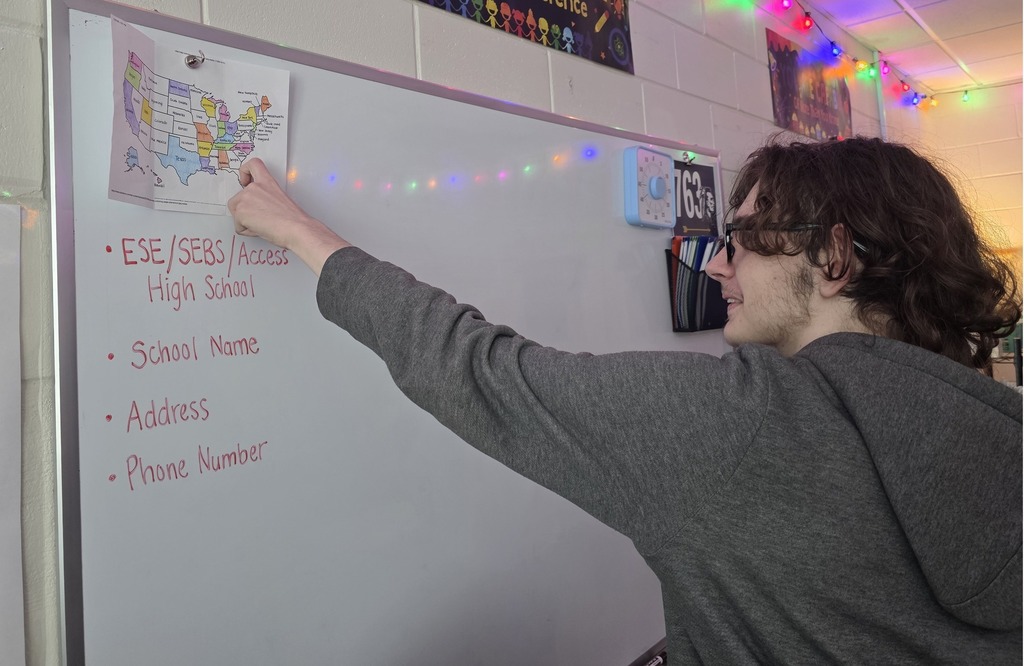 erence
763
Texas
• ESE/SEBS/Access
High School
• School Name
• Address
• Phone Number